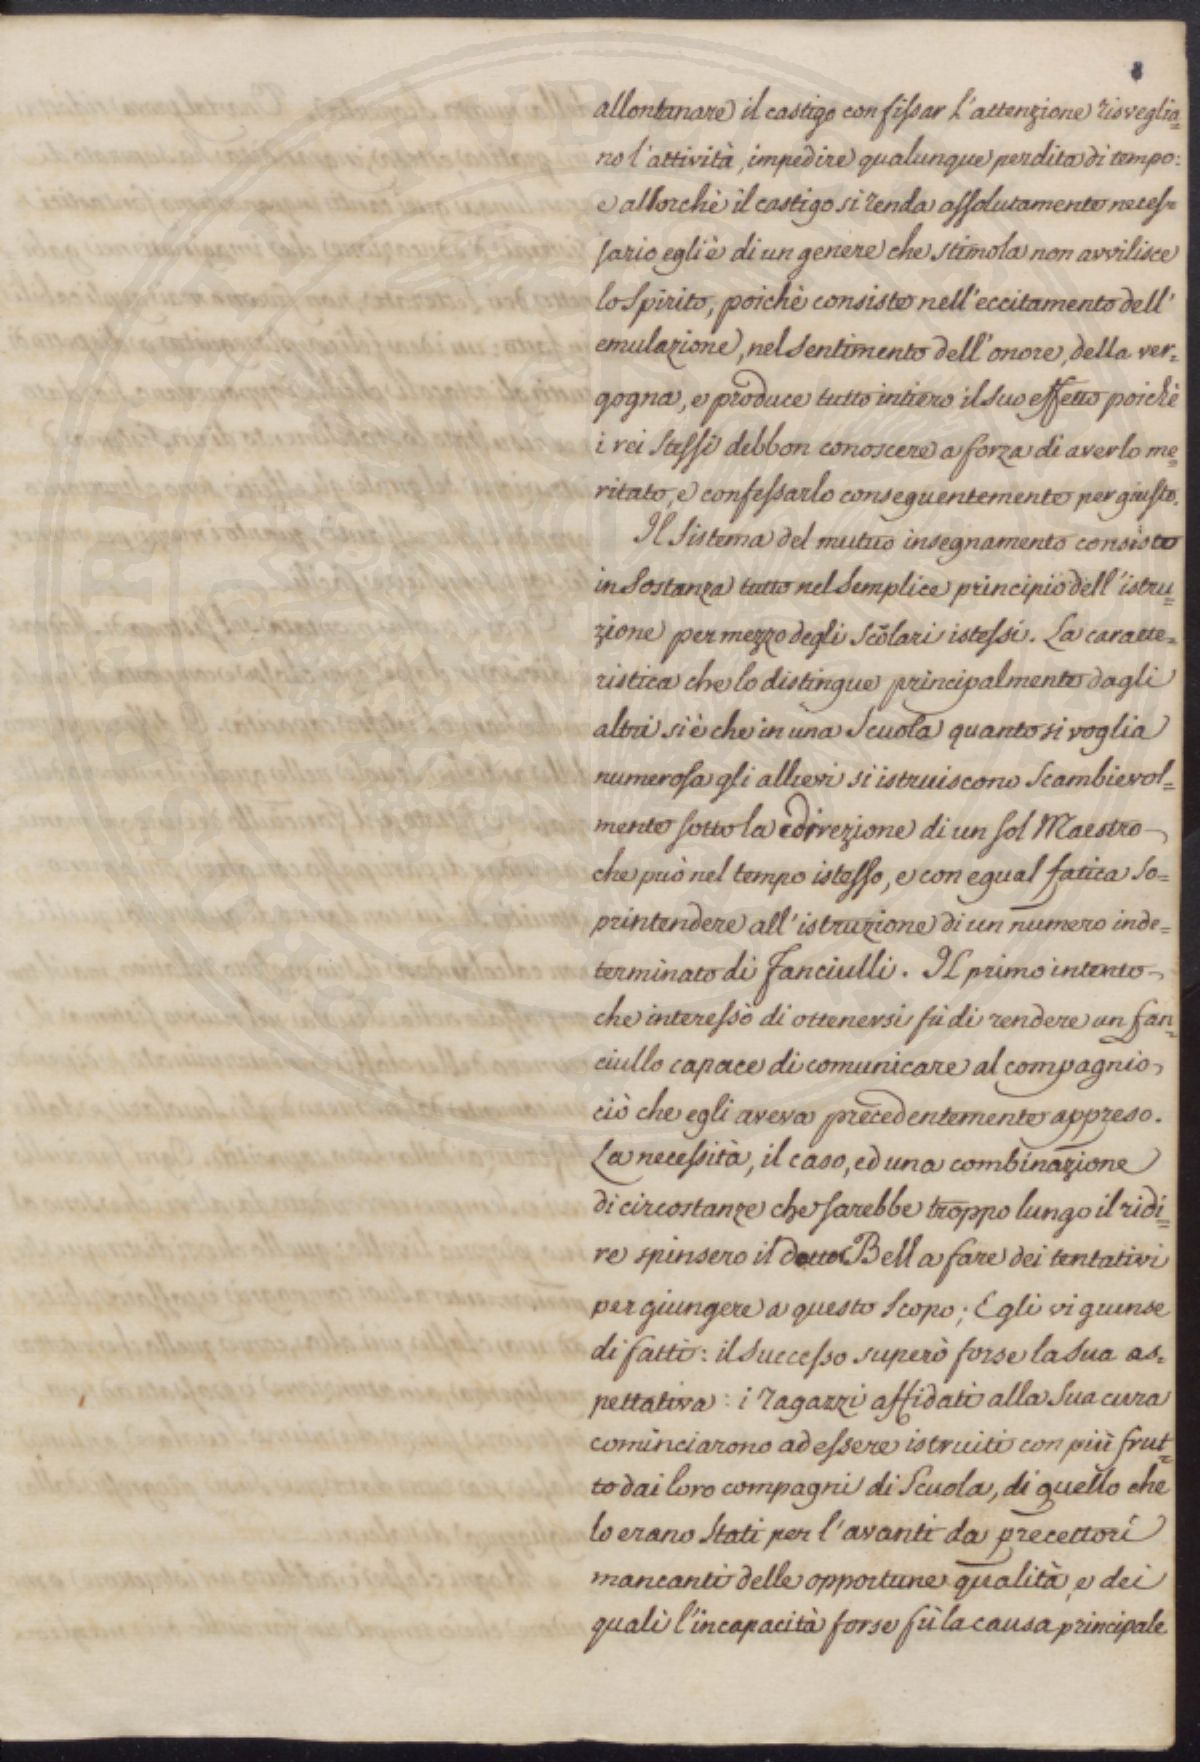 8
allontanare il castigo con fissar l'attenzione risveglia=
no l'attività, impedire qualunque perdita di tempo:
e allorchè il castigo si renda assolutamente neces=
sario egli è di un genere che stimola non avvilisce
lo Spirito, poichè consiste nell'eccitamento dell'
emulazione, nel Sentimento dell'onore, della ver=
gogna, e produce tutto intiero il suo effetto poichè
i rei stessi debbon conoscere a forza di averlo me=
ritato, e confessarlo conseguentemente per giusto.
Il Sistema del mutuo insegnamento consiste
in Sostanza tutto nel Semplice principio dell'istru=
zione per mezzo degli Scolari istessi. La caratte=
ristica che lo distingue principalmente dagli
altri si è che in una Scuola quanto si voglia
numerosa gli allievi si istruiscono Scambievol=
mente sotto la direzione di un sol Maestro
che può nel tempo istesso, e con egual fatica So=
printendere all'istruzione di un numero inde=
terminato di Fanciulli. Il primo intento
che interessò di ottenersi fù di rendere un fan=
ciullo capace di comunicare al compagnio
ciò che egli aveva precedentemente appreso.
La necessità, il caso, ed una combinazione
di circostanze che sarebbe troppo lungo il ridi=
re spinsero il dottor Bell a fare dei tentativi
per giungere a questo Scopo; Egli vi giunse
di fatti: il Successo superò forse la Sua as=
pettativa: i ragazzi affidati alla Sua cura
cominciarono ad essere istruiti con più frut=
to dai loro compagni di Scuola, di quello che
lo erano Stati per l'avanti da precettori
mancanti delle opportune qualità, e dei
quali l'incapacità forse fù la causa principale